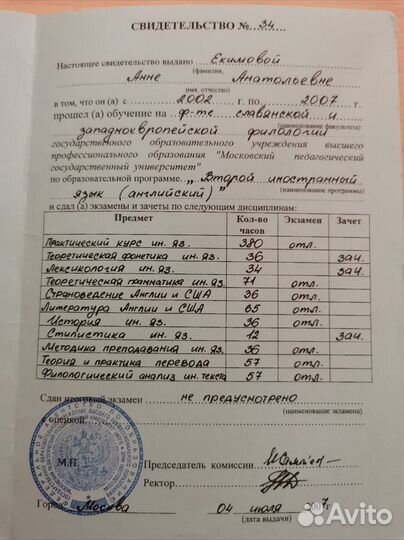 СВИДЕТЕЛЬСТВО № 34
Настоящее свидетельство выдано Екимовой
(фамилия,
Анне Анатольевне
имя, отчество)
в том, что он (а) с 2002 г. по 2007 г.
прошел (а) обучение на ф-те славянской и
(наименование факультета)
западноевропейской филологии
государственного образовательного учреждения высшего
профессионального образования "Московский педагогический
государственный университет"
по образовательной программе „Второй иностранный
(наименование программы)
язык (английский)"
и сдал (а) экзамены и зачеты по следующим дисциплинам:
Предмет Кол-во часов Экзамен Зачет
Практический курс ин. яз. 380 отл.
Теоретическая фонетика ин. яз. 36 зач.
Лексикология ин. яз. 34 зач.
Теоретическая грамматика ин. яз. 71 отл.
Страноведение Англии и США 36 отл.
Литература Англии и США 65 отл.
История ин. яз. 36 отл.
Стилистика ин. яз. 12 зач.
Методика преподавания ин. яз. 36 отл.
Теория и практика перевода 57 отл.
Филологический анализ ин. текста 57 отл.
Сдал итоговый экзамен не предусмотрено
(наименование экзамена)
с оценкой
М.П.
Председатель комиссии
Ректор
Город Москва 04 июля 2007
(дата выдачи)
Avito